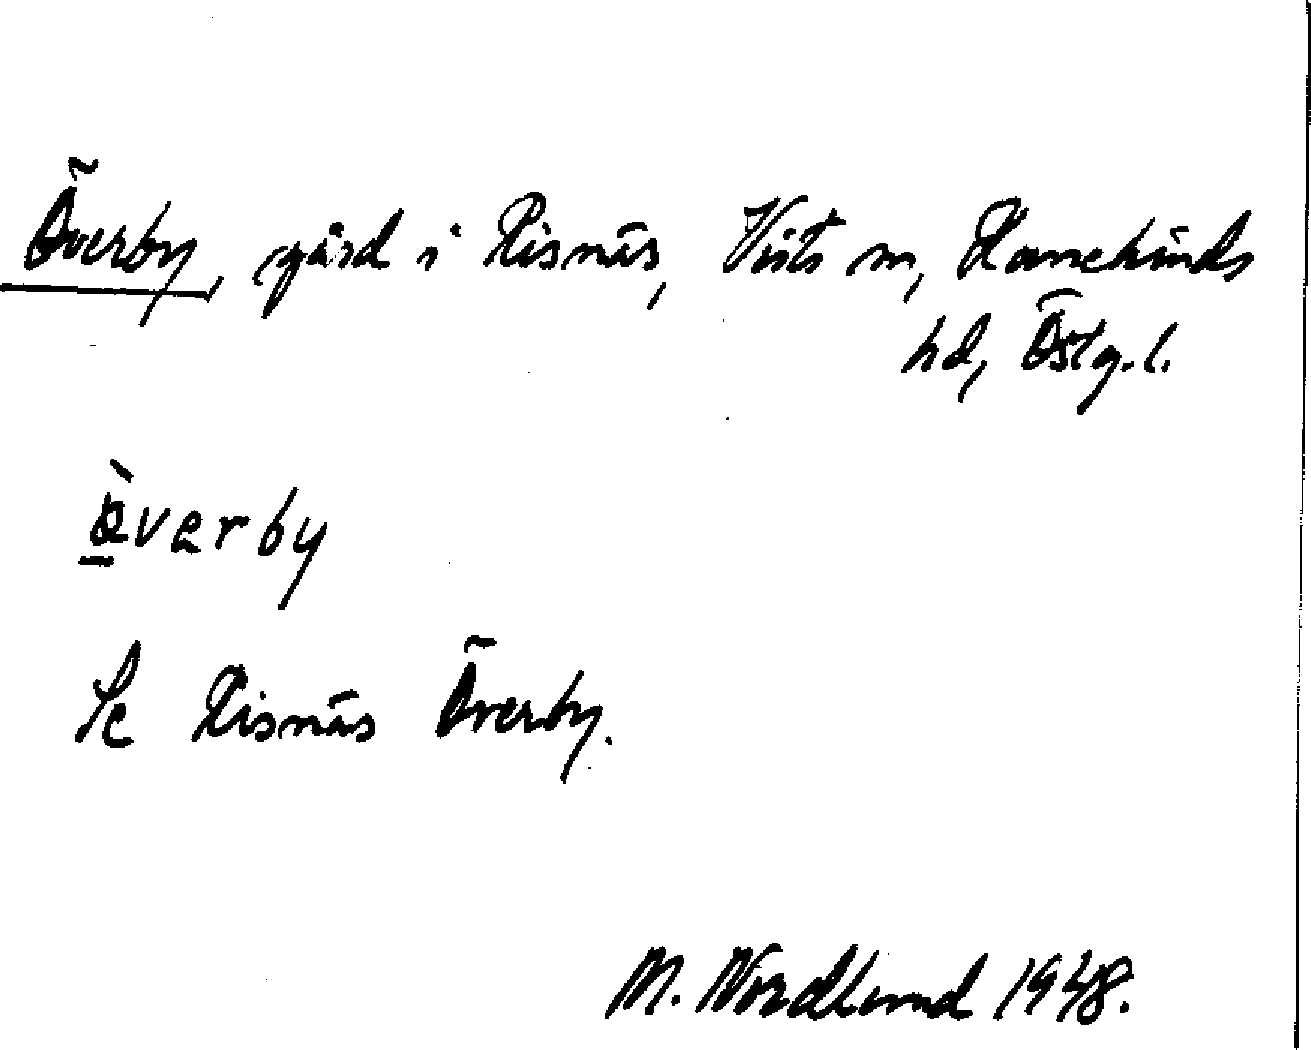 Överby, gård i Risnäs, Vists sn, Hanekinds
hd, Östg.l.
ö̀verby
Se Risnäs Överby.
M. Nordlund 1948.